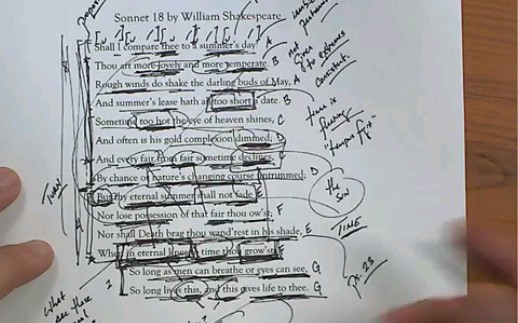 Sonnet 18 by William Shakespeare
Shall I compare thee to a summer's day? A
Thou art more lovely and more temperate. B
Rough winds do shake the darling buds of May, A
And summer's lease hath all too short a date. B
Sometime too hot the eye of heaven shines, C
And often is his gold complexion dimmed; D
And every fair from fair sometime declines,
By chance or nature's changing course untrimmed; D
But thy eternal summer shall not fade, E
Nor lose possession of that fair thou ow'st; F
Nor shall Death brag thou wand'rest in his shade, E
When in eternal lines to time thou grow'st: F
So long as men can breathe or eyes can see, G
So long lives this, and this gives life to thee. G
not
given
to extremes
consistent.
time is
fleeting
"tempus fugit"
the
sun
TIME
Ps. 23
TURN
What